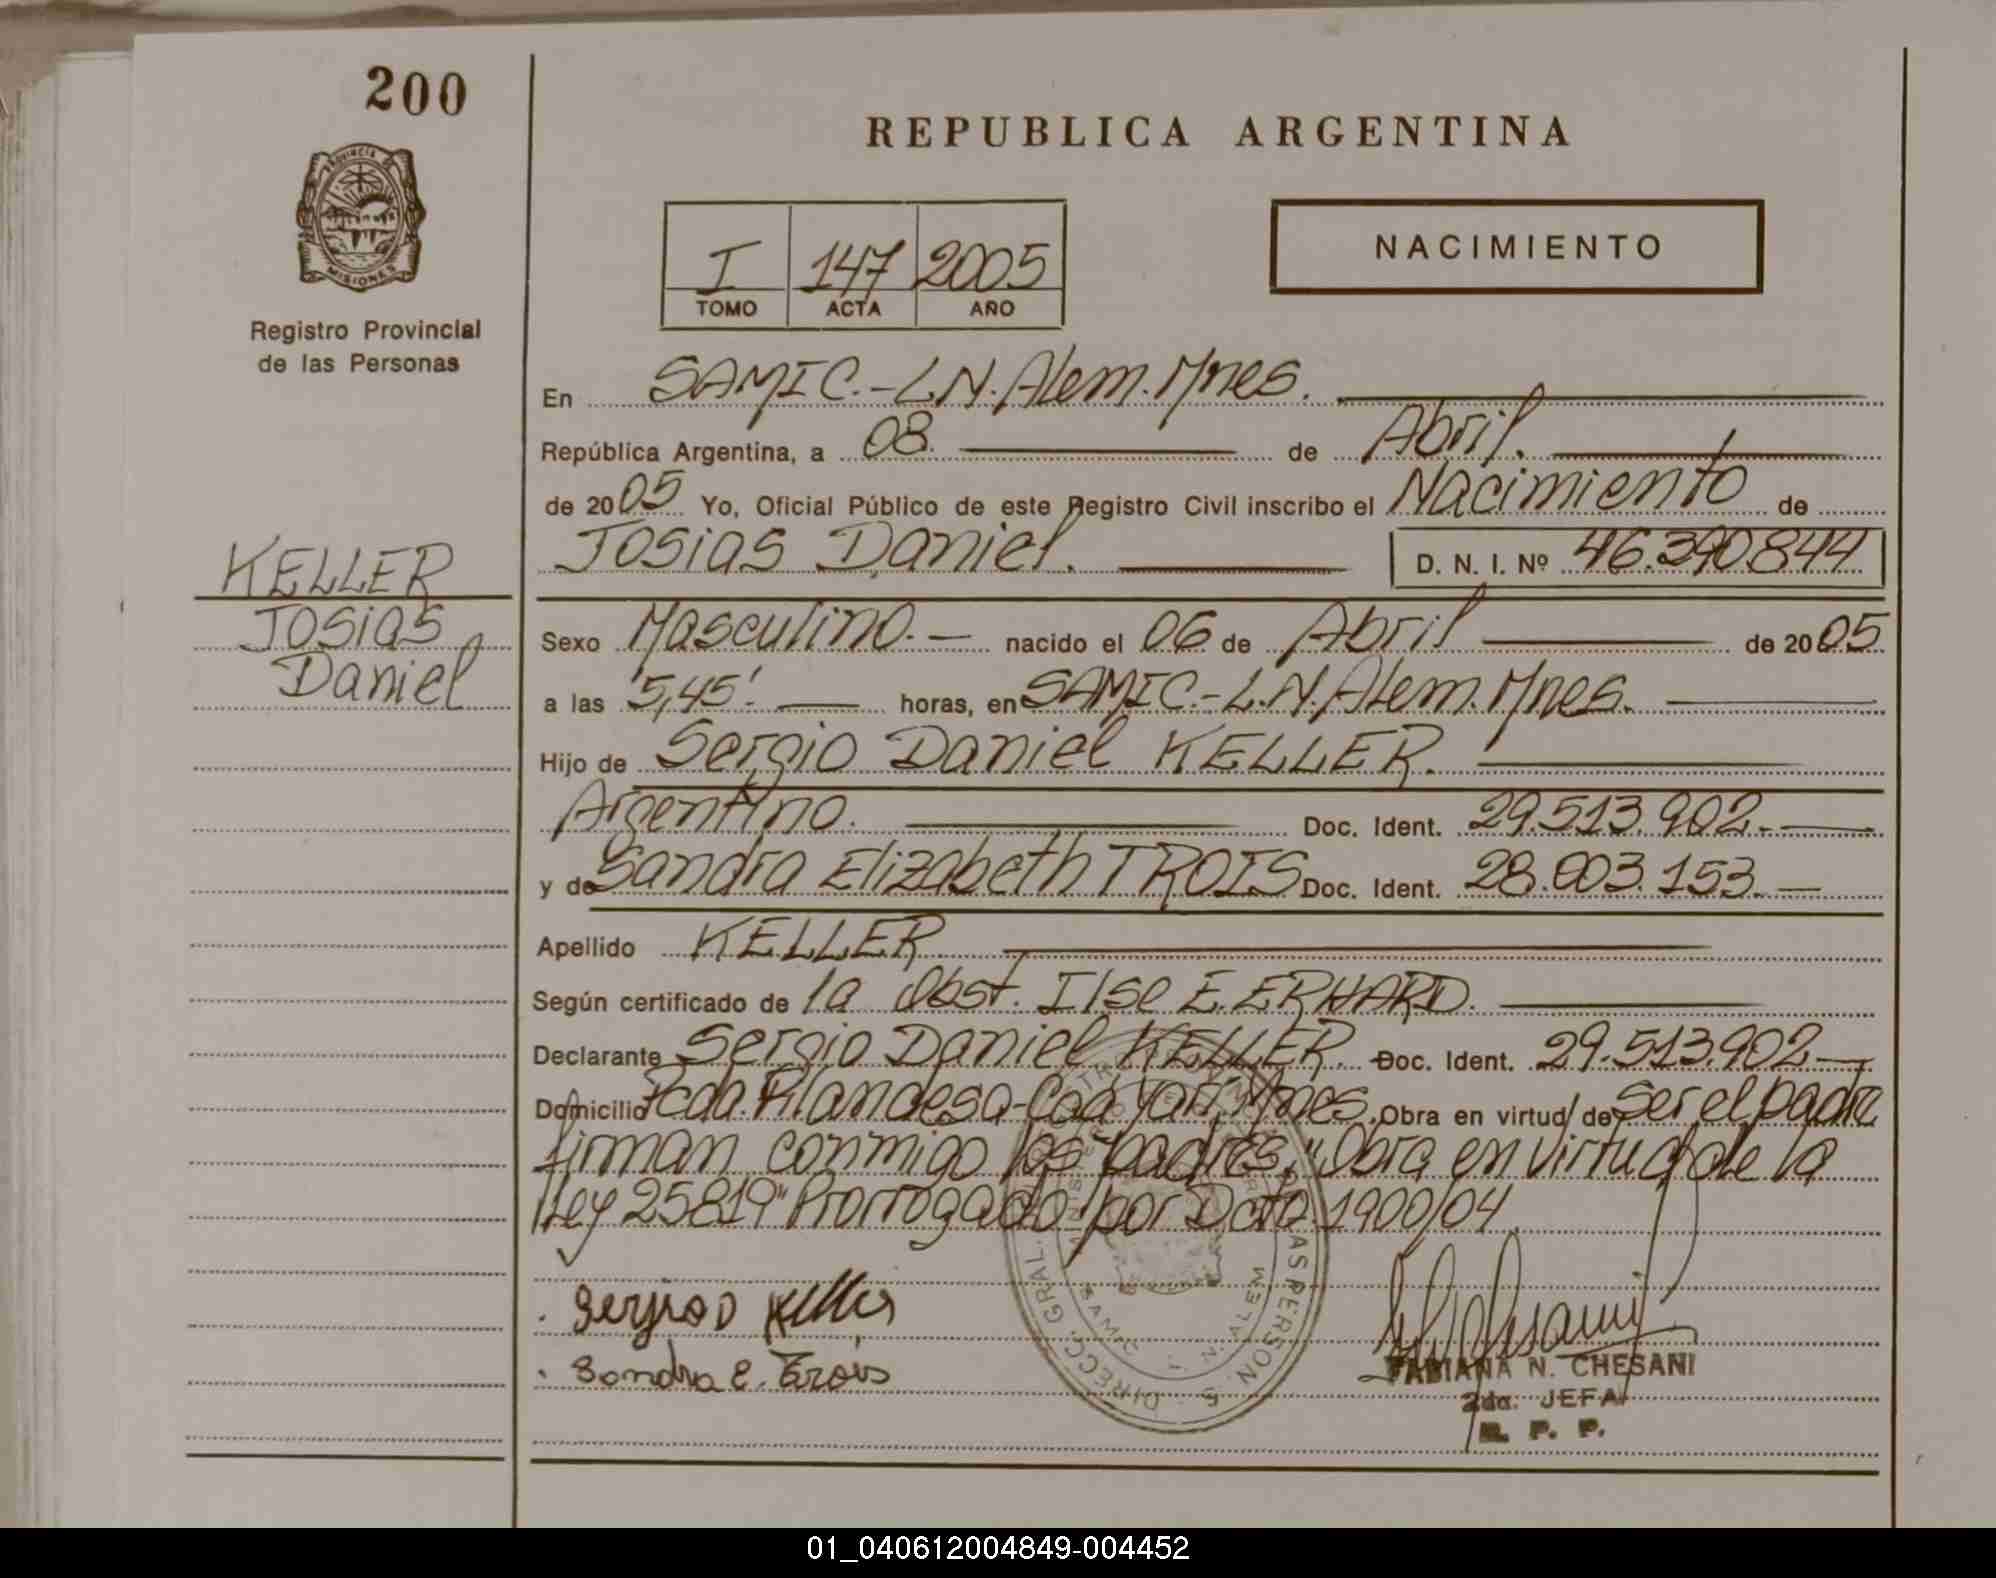 200
PROVINCIA DE
MISIONES
Registro Provincial
de las Personas
KELLER
Josias
Daniel
REPUBLICA ARGENTINA
I 147 2005
TOMO ACTA AÑO
NACIMIENTO
En SAMIC.-L.N.Alem.Mnes.
República Argentina, a 08. de Abril.
de 2005 Yo, Oficial Público de este Registro Civil inscribo el Nacimiento de
Josias Daniel. D. N. I. Nº 46.390.844
Sexo Masculino.- nacido el 06 de Abril de 2005
a las 5,45'. horas, en SAMIC.-L.N.Alem.Mnes.
Hijo de Sergio Daniel KELLER.
Argentino. Doc. Ident. 29.513.902.-
y de Sandra Elizabeth TROIS Doc. Ident. 28.003.153.-
Apellido KELLER
Según certificado de la Obst. Ilse E. ERHARD.
Declarante Sergio Daniel KELLER. Doc. Ident. 29.513.902-
Domicilio Pcda. Mnes. Obra en virtud de Ser el padre
firman conmigo los padres. "Obra en virtud de la
Ley 25819" Prorrogado por Dcto. 1900/04
Sergio D Keller
Sandra E. Trois
DIRECC. GRAL.
SAMIC L. N. ALEM
FABIANA N. CHESANI
2da. JEFA
R. P. P.
01_040612004849-004452